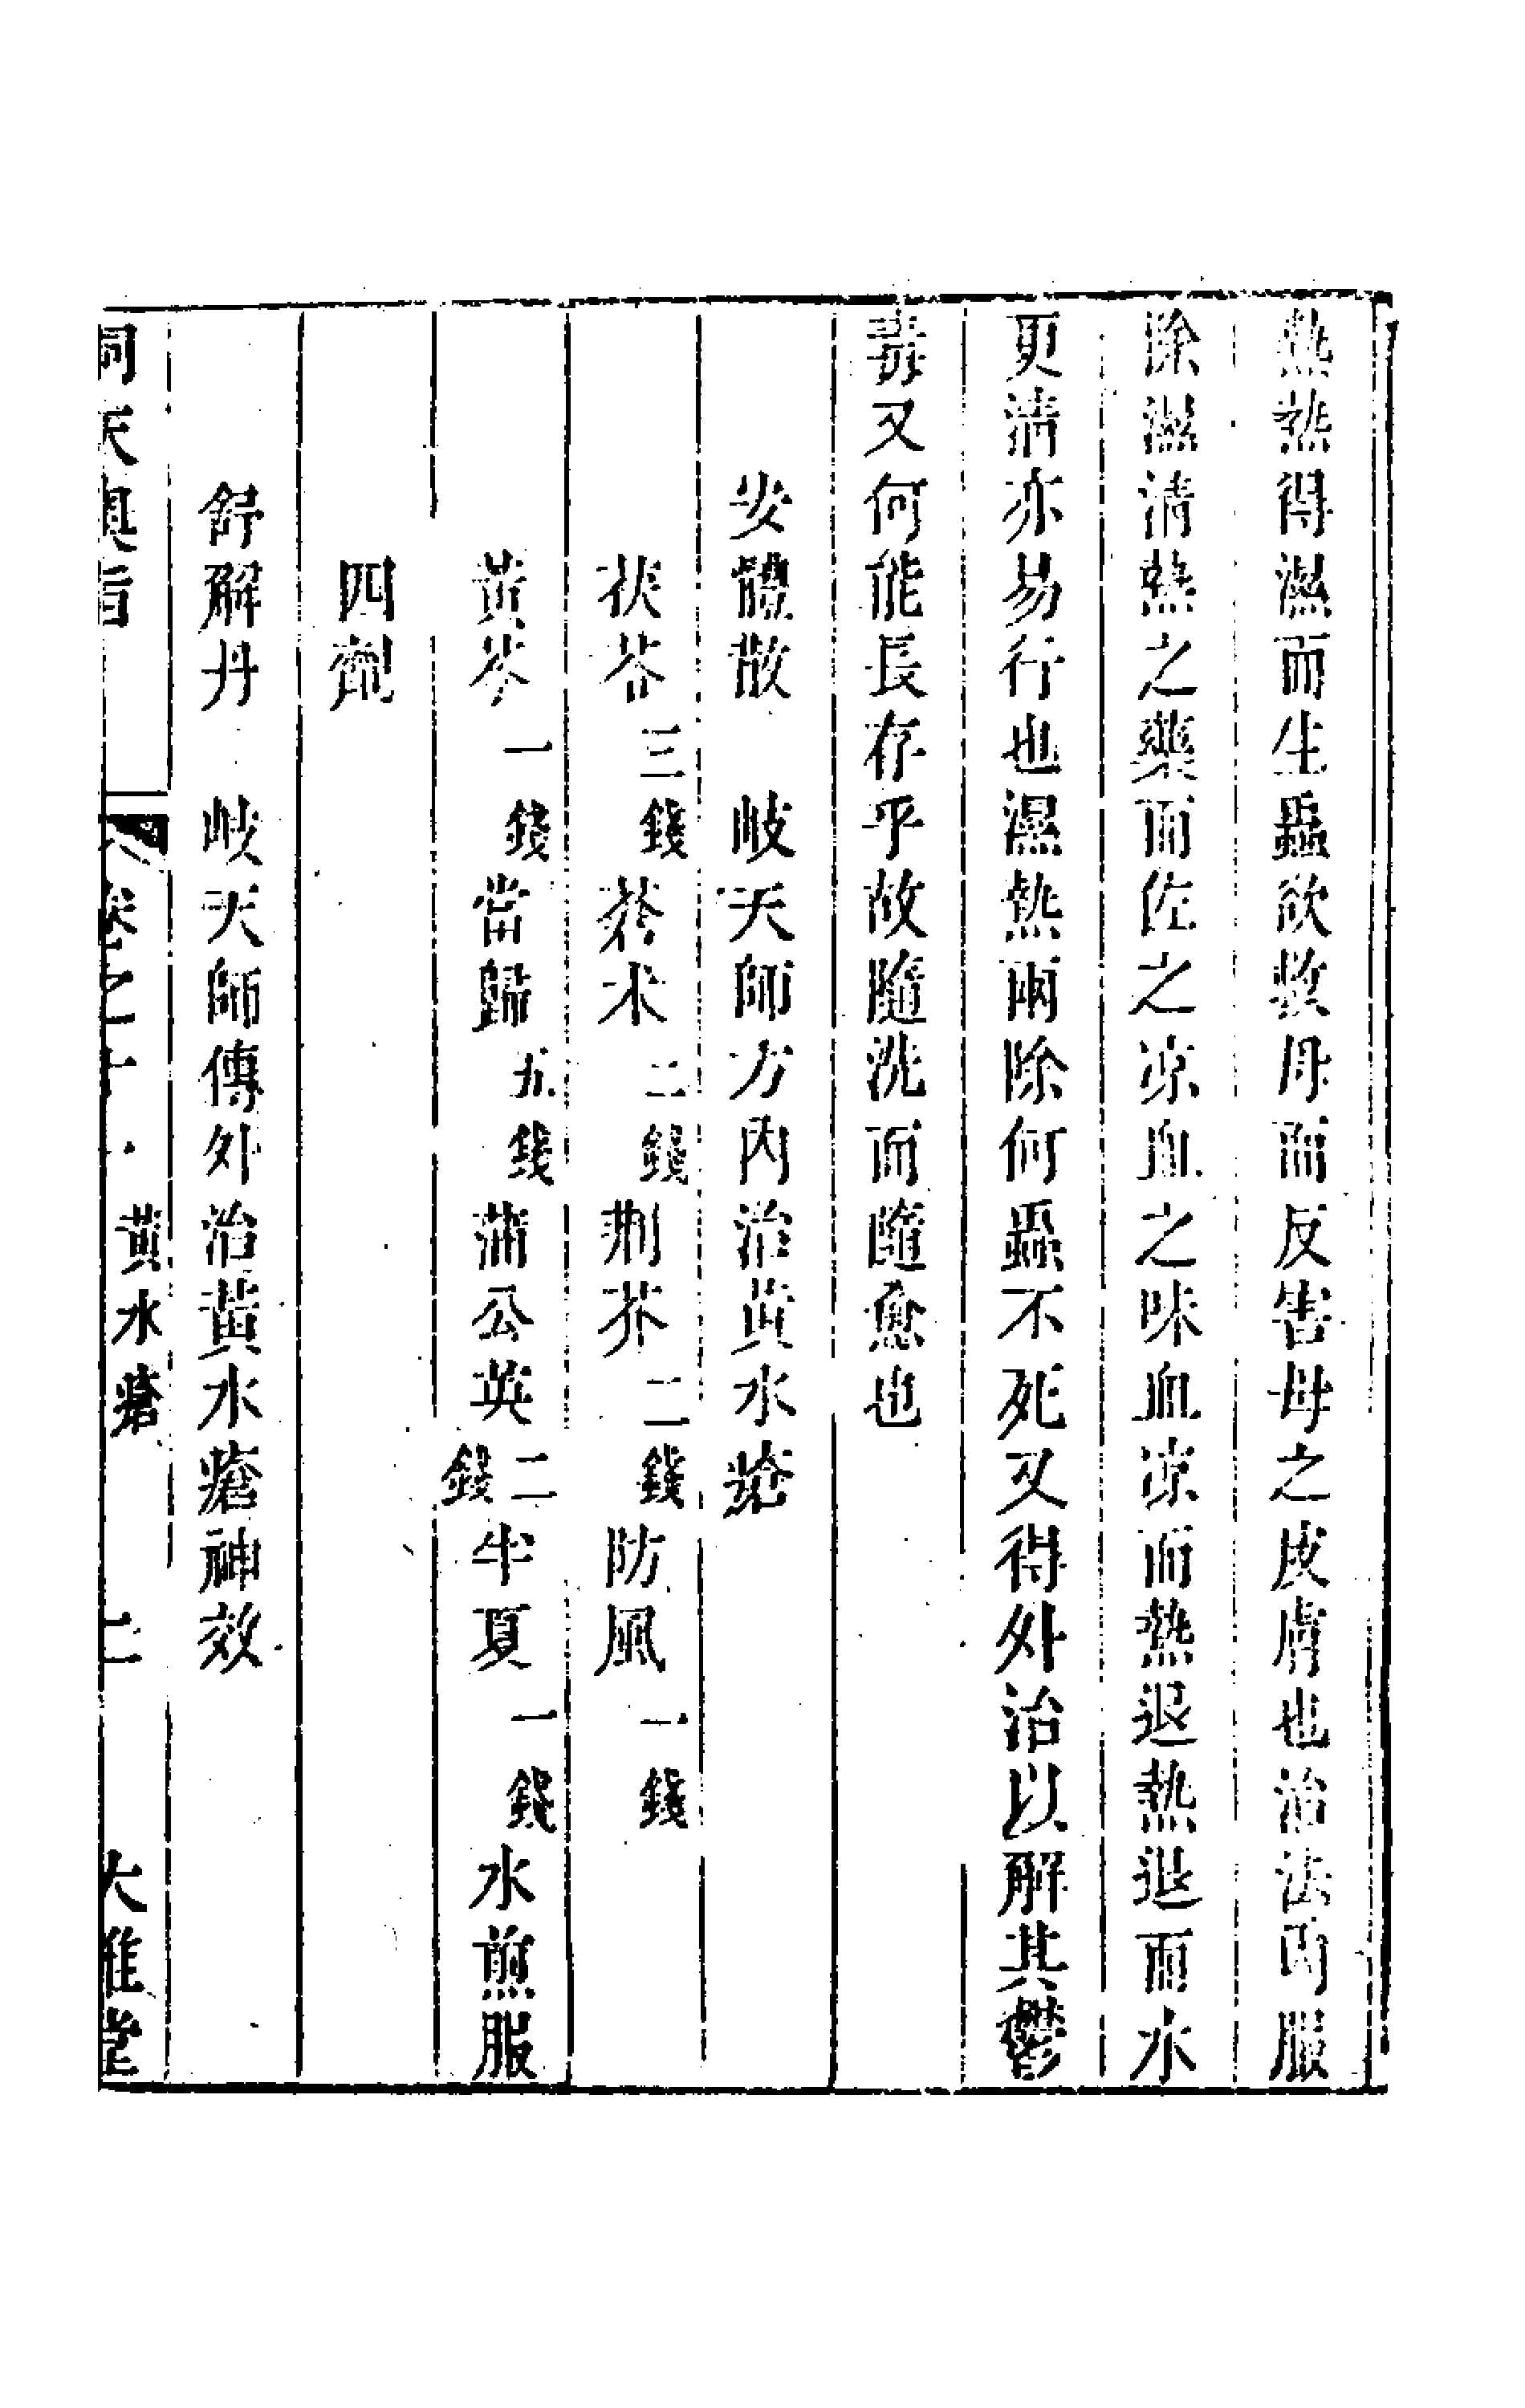 熱熱得濕而生蟲欲救母而反害母之皮膚也治法內服
除濕清熱之藥而佐之凉血之味血凉而熱退熱退而水
更清亦易行也濕熱兩除何蟲不死又得外治以解其鬱
毒又何能長存乎故隨洗而隨愈也
安體散　岐天師方內治黃水瘡
茯苓三錢蒼术二錢荆芥二錢防風一錢
黃芩一錢當歸五錢蒲公英二錢半夏一錢水煎服
四劑
舒解丹　岐天師傳外治黃水瘡神效
洞天奧旨　卷之十　黃水瘡　二　大雅堂